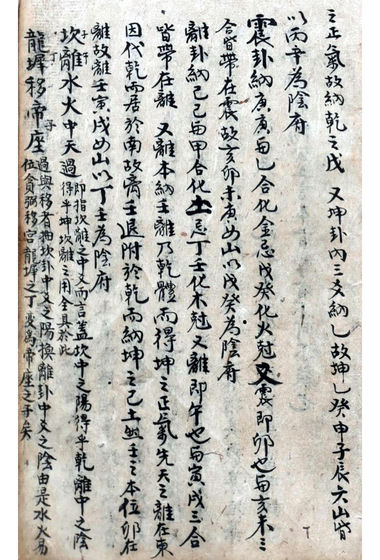 之正氣故納乾之戊 又坤卦內三爻納乚故坤乚癸申子辰六山皆
以丙辛為陰府
震卦納庚庚与乚合化金忌戊癸化火尅 又震即卯也与亥未三
合皆帶在震故亥卯未庚四山以戊癸為陰府
離卦納己己与甲合化土忌丁壬化木尅 又離即午也与寅戌三合
皆帶在離 又離本納壬離乃乾體而得坤之正氣先天之離在東
因代乾而居於南故 壬退附於乾而納坤之己土然壬之本位仍在
離故離壬寅戌四山以丁壬為陰府
坎離水火中天過 即指坎離之中爻而言蓋坎中之陽得乎乾離中之陰
得乎坤坎離之用全具於此
龍墀移帝座 過與移者抽坎卦中爻之陽換離卦中爻之陰由是水火易
位貪弼移宮龍墀之丁变為帝座之子矣